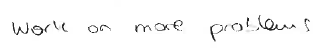 Work on more problems